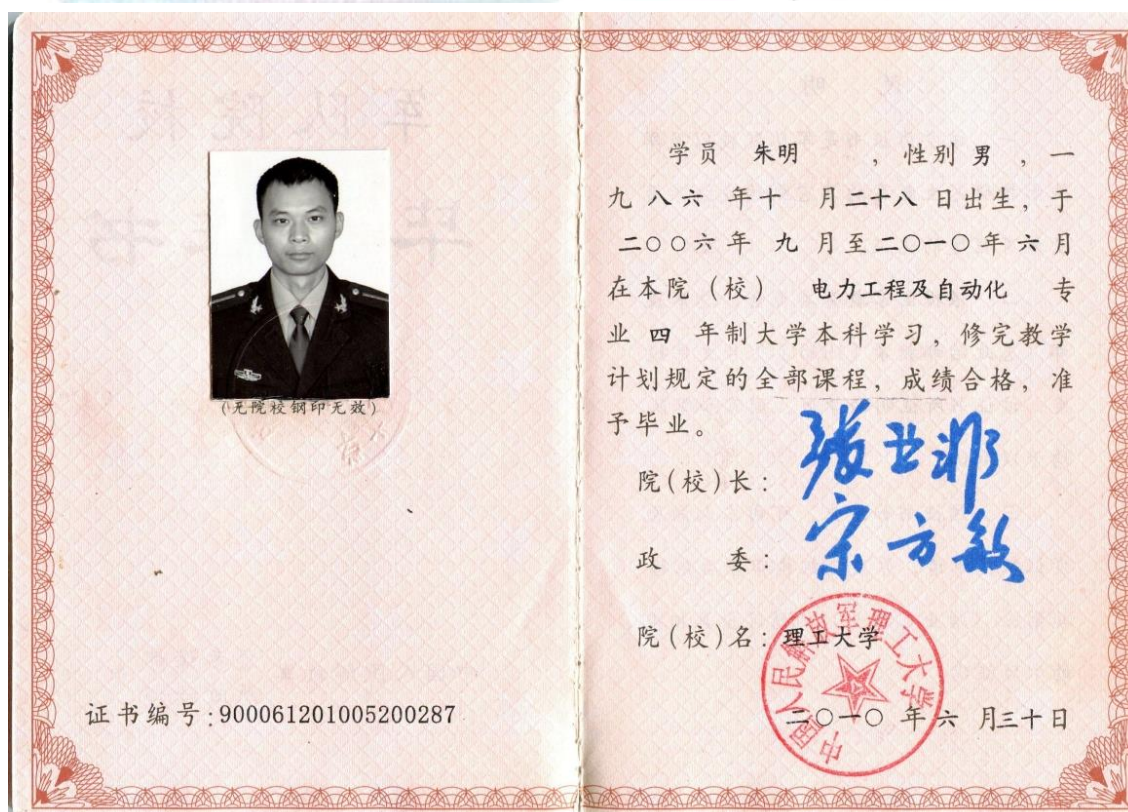 (无院校钢印无效)
证书编号:900061201005200287
学员 朱明 ,性别 男 ,一
九八六 年十 月二十八 日出生,于
二〇〇六年 九 月至二〇一〇年 六月
在本院(校) 电力工程及自动化 专
业 四 年制大学本科学习,修完教学
计划规定的全部课程,成绩合格,准
予毕业。
院(校)长: 张亚非
政 委: 宗方敏
院(校)名: 理工大学
中国人民解放军理工大学
二〇一〇 年 六 月三十日